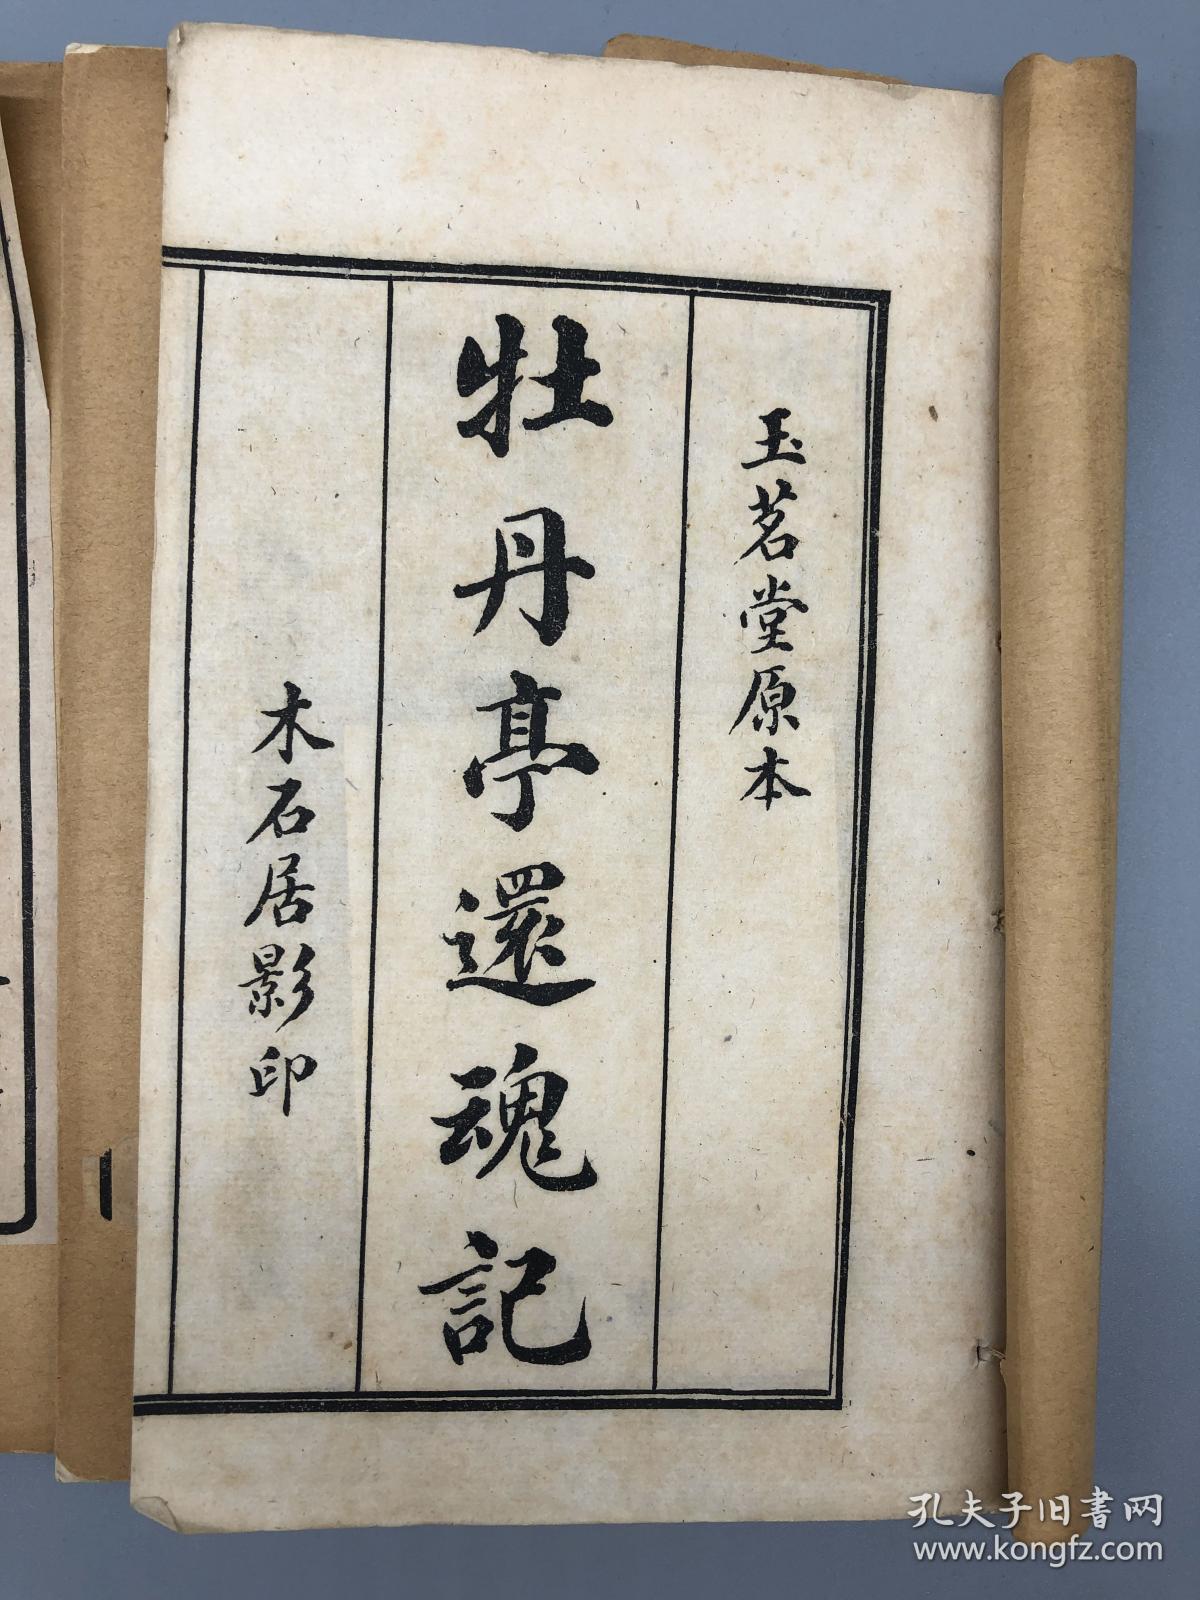 玉茗堂原本
牡丹亭還魂記
木石居影印
孔夫子旧書网
www.kongfz.com